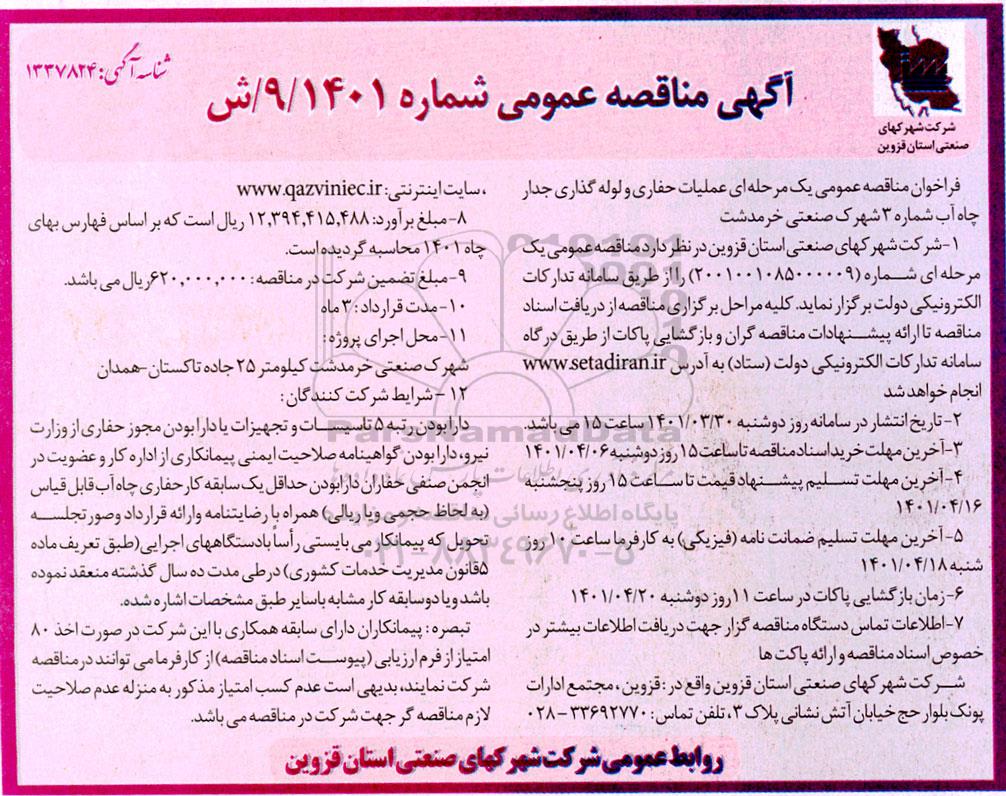 شرکت شهرکهای
صنعتی استان قزوین
شناسه آگهی: ۱۳۳۷۸۲۴
آگهی مناقصه عمومی شماره ۹/۱۴۰۱/ش
فراخوان مناقصه عمومی یک مرحله ای عملیات حفاری و لوله گذاری جدار
چاه آب شماره ۳ شهرک صنعتی خرمدشت
۱-شرکت شهرکهای صنعتی استان قزوین در نظر دارد مناقصه عمومی یک
مرحله ای شماره (۲۰۰۱۰۰۱۰۸۵۰۰۰۰۰۹) را از طریق سامانه تدارکات
الکترونیکی دولت برگزار نماید. کلیه مراحل برگزاری مناقصه از دریافت اسناد
مناقصه تا ارائه پیشنهادات مناقصه گران و بازگشایی پاکات از طریق درگاه
سامانه تدارکات الکترونیکی دولت (ستاد) به آدرس www.setadiran.ir
انجام خواهد شد
۲-تاریخ انتشار در سامانه روز دوشنبه ۱۴۰۱/۰۳/۳۰ ساعت ۱۵ می باشد.
۳-آخرین مهلت خرید اسناد مناقصه تا ساعت ۱۵ روز دوشنبه ۱۴۰۱/۰۴/۰۶
۴-آخرین مهلت تسلیم پیشنهاد قیمت تا ساعت ۱۵ روز پنجشنبه
۱۴۰۱/۰۴/۱۶
۵-آخرین مهلت تسلیم ضمانت نامه (فیزیکی) به کارفرما ساعت ۱۰ روز
شنبه ۱۴۰۱/۰۴/۱۸
۶-زمان بازگشایی پاکات در ساعت ۱۱ روز دوشنبه ۱۴۰۱/۰۴/۲۰
۷-اطلاعات تماس دستگاه مناقصه گزار جهت دریافت اطلاعات بیشتر در
خصوص اسناد مناقصه و ارائه پاکت ها
شرکت شهرکهای صنعتی استان قزوین واقع در: قزوین، مجتمع ادارات
پونک بلوار حج خیابان آتش نشانی پلاک ۳، تلفن تماس: ۳۳۶۹۲۷۷۰-۰۲۸
، سایت اینترنتی: www.qazviniec.ir
۸-مبلغ برآورد: ۱۲,۳۹۴,۴۱۵,۴۸۸ ریال است که بر اساس فهارس بهای
چاه ۱۴۰۱ محاسبه گردیده است.
۹-مبلغ تضمین شرکت در مناقصه: ۶۲۰,۰۰۰,۰۰۰ ریال می باشد.
۱۰-مدت قرارداد: ۳ ماه
۱۱-محل اجرای پروژه:
شهرک صنعتی خرمدشت کیلومتر ۲۵ جاده تاکستان-همدان
۱۲-شرایط شرکت کنندگان:
دارا بودن رتبه ۵ تاسیسات و تجهیزات یا دارا بودن مجوز حفاری از وزارت
نیرو، دارا بودن گواهینامه صلاحیت ایمنی پیمانکاری از اداره کار و عضویت در
انجمن صنفی حفاران دارا بودن حداقل یک سابقه کار حفاری چاه آب قابل قیاس
(به لحاظ حجمی و یا ریالی) همراه با رضایتنامه و ارائه قرارداد و صورتجلسه
تحویل که پیمانکار می بایستی رأساً با دستگاههای اجرایی (طبق تعریف ماده
۵ قانون مدیریت خدمات کشوری) در طی مدت ده سال گذشته منعقد نموده
باشد و یا دو سابقه کار مشابه با سایر طبق مشخصات اشاره شده.
تبصره: پیمانکاران دارای سابقه همکاری با این شرکت در صورت اخذ ۸۰
امتیاز از فرم ارزیابی (پیوست اسناد مناقصه) از کارفرما می توانند در مناقصه
شرکت نمایند، بدیهی است عدم کسب امتیاز مذکور به منزله عدم صلاحیت
لازم مناقصه گر جهت شرکت در مناقصه می باشد.
روابط عمومی شرکت شهرکهای صنعتی استان قزوین
ParsNamadData
پایگاه اطلاع رسانی
۰۲۱-۸۸۳۴۹۶۷۰-۵